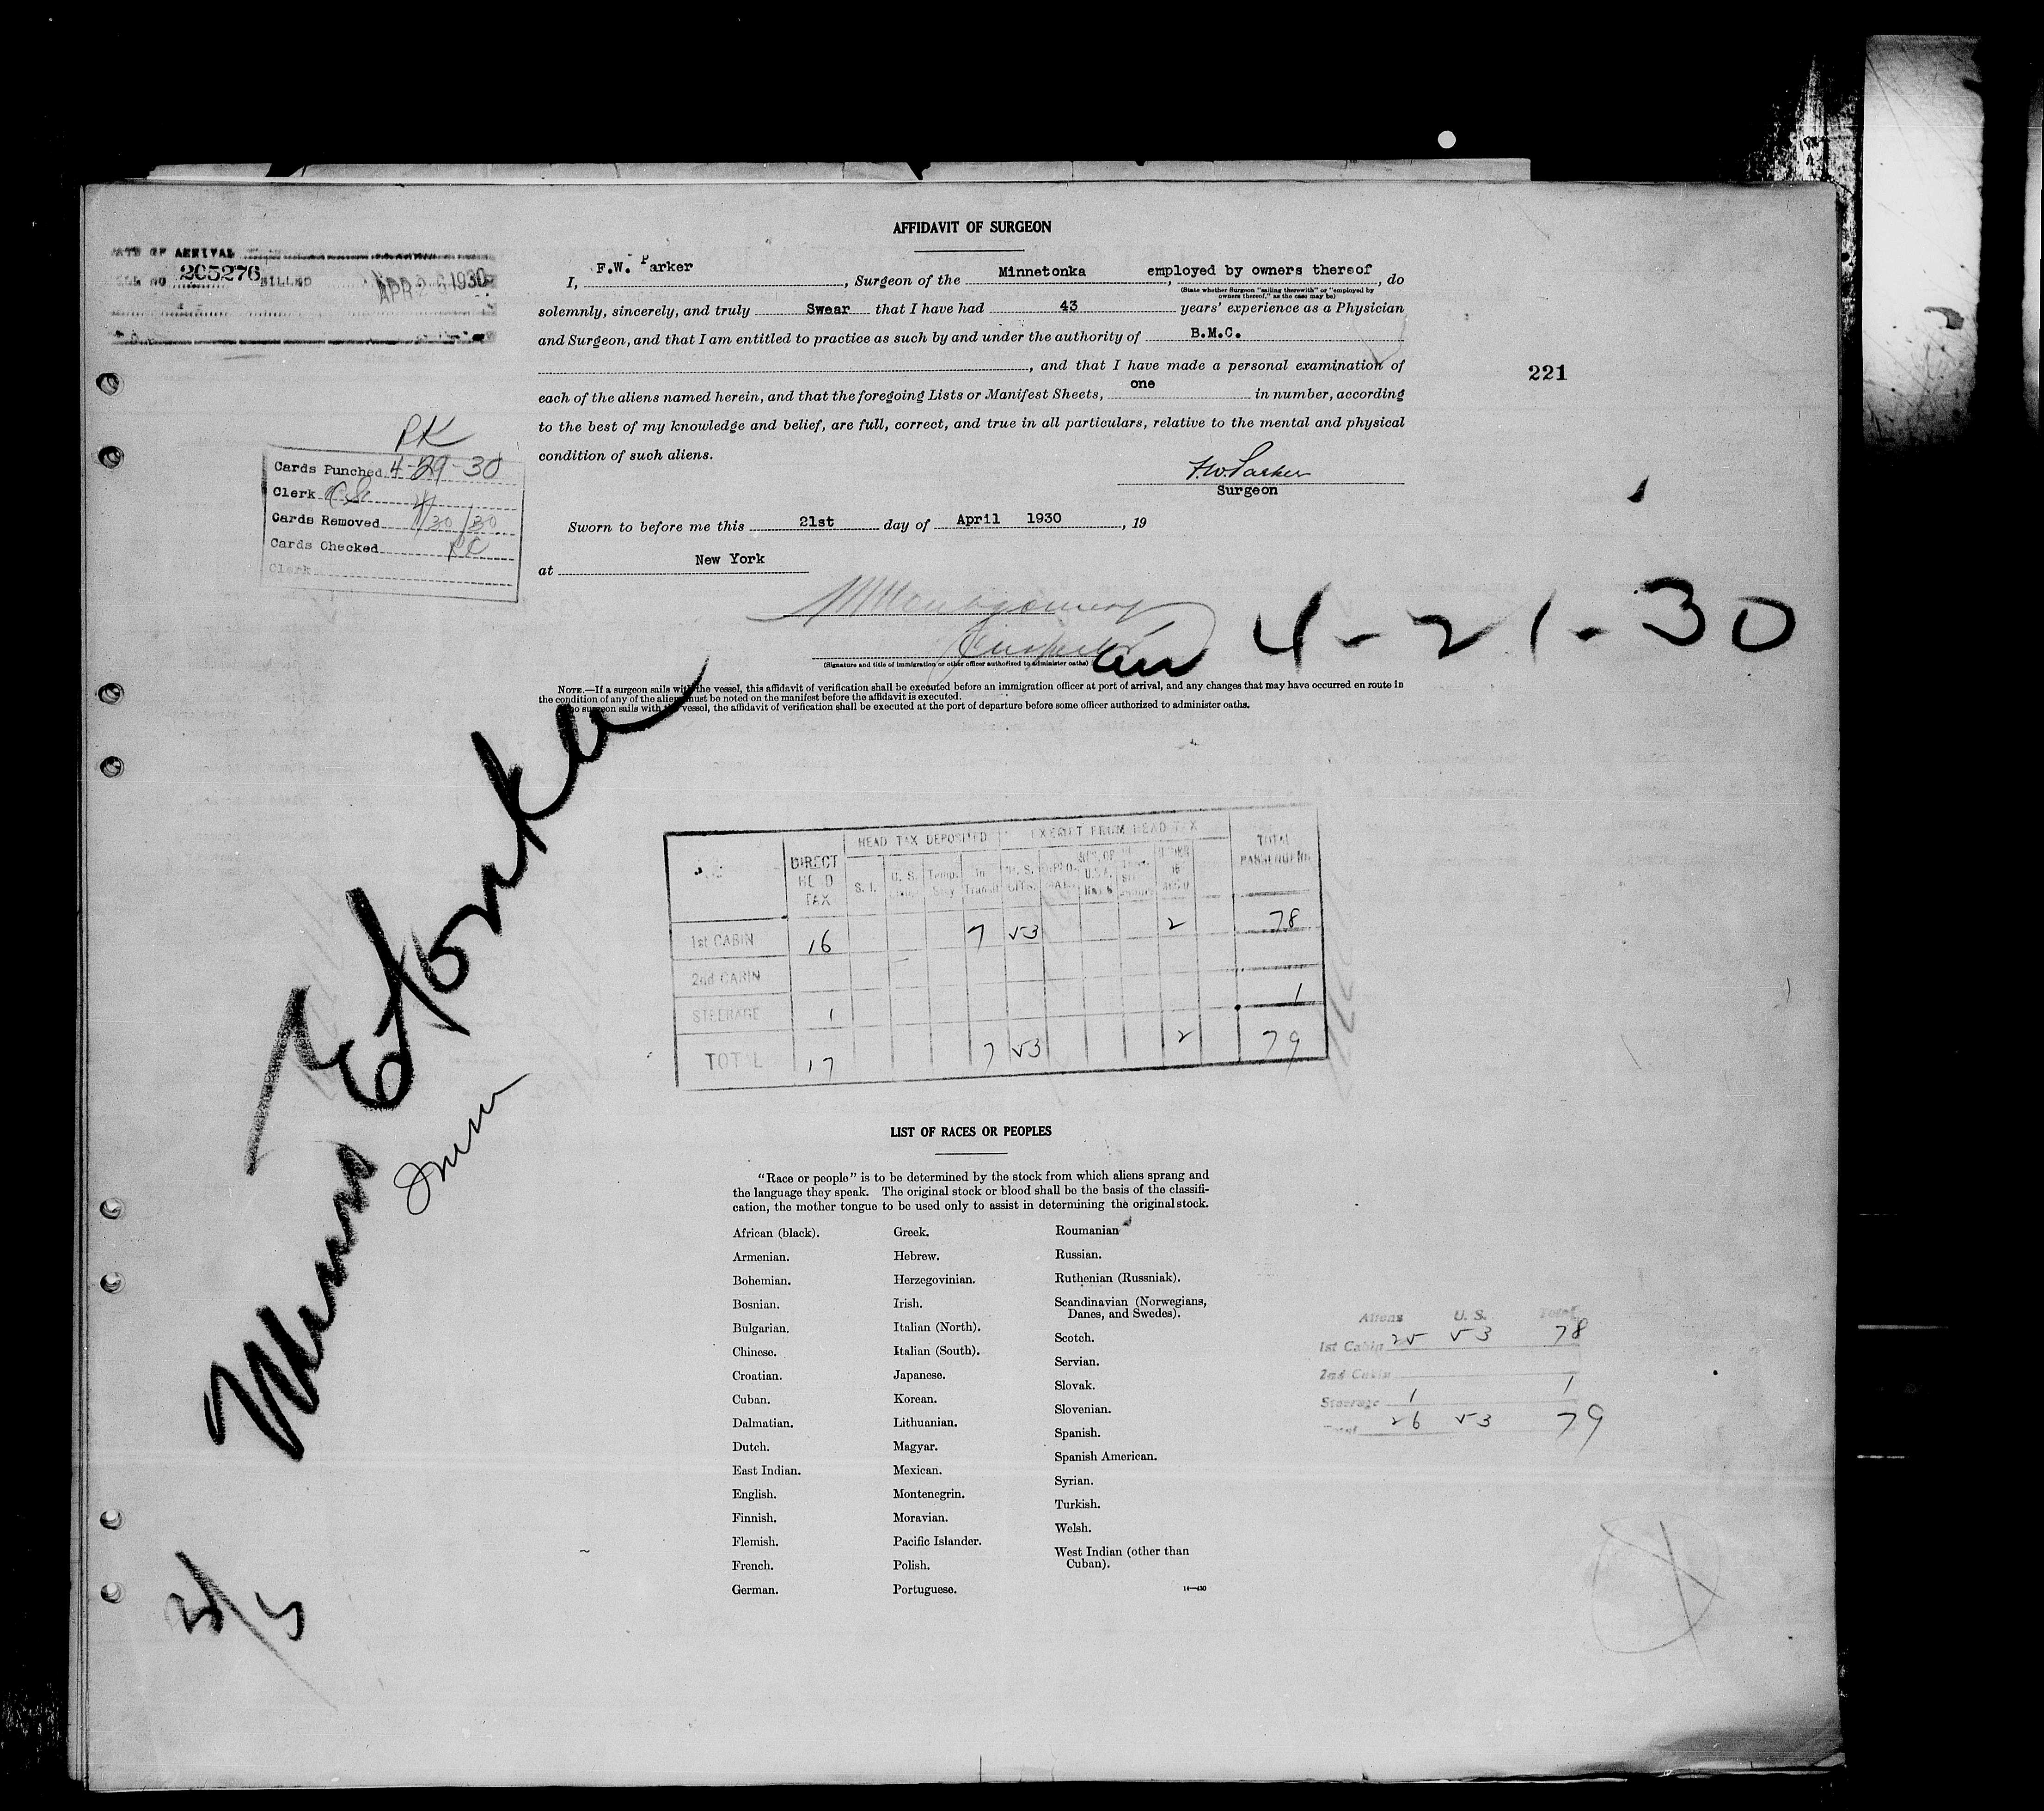 AFFIDAVIT OF SURGEON
DATE OF ARRIVAL
BILL NO 205276 BILLED APR 26 1930
I, F.W. Parker, Surgeon of the Minnetonka, employed by owners thereof, do
(State whether Surgeon "sailing therewith" or "employed by
owners thereof," as the case may be)
solemnly, sincerely, and truly Swear that I have had 43 years' experience as a Physician
and Surgeon, and that I am entitled to practice as such by and under the authority of B.M.C.
, and that I have made a personal examination of
each of the aliens named herein, and that the foregoing Lists or Manifest Sheets, one in number, according
to the best of my knowledge and belief, are full, correct, and true in all particulars, relative to the mental and physical
condition of such aliens.
221
F.W. Parker
Surgeon
PK
Cards Punched 4-29-30
Clerk
Cards Removed 4/30/30
Cards Checked
Clerk
Sworn to before me this 21st day of April 1930, 19
at New York
Montgomery
Inspector
(Signature and title of immigration or other officer authorized to administer oaths)
arr 4-21-30
NOTE.—If a surgeon sails with the vessel, this affidavit of verification shall be executed before an immigration officer at port of arrival, and any changes that may have occurred en route in
the condition of any of the aliens must be noted on the manifest before the affidavit is executed.
If no surgeon sails with the vessel, the affidavit of verification shall be executed at the port of departure before some officer authorized to administer oaths.
Minnetonka
DIRECT HEAD TAX
HEAD TAX DEPOSITED
EXEMPT FROM HEAD TAX
TOTAL PASSENGERS
S. I. U. S. Temp. Stay In Transit U. S. CITS. DIPLOMATS UNDER 16
1st CABIN 16 7 53 2 78
2nd CABIN
STEERAGE 1 1
TOTAL 17 7 53 2 79
LIST OF RACES OR PEOPLES
"Race or people" is to be determined by the stock from which aliens sprang and
the language they speak. The original stock or blood shall be the basis of the classifi-
cation, the mother tongue to be used only to assist in determining the original stock.
African (black).
Armenian.
Bohemian.
Bosnian.
Bulgarian.
Chinese.
Croatian.
Cuban.
Dalmatian.
Dutch.
East Indian.
English.
Finnish.
Flemish.
French.
German.
Greek.
Hebrew.
Herzegovinian.
Irish.
Italian (North).
Italian (South).
Japanese.
Korean.
Lithuanian.
Magyar.
Mexican.
Montenegrin.
Moravian.
Pacific Islander.
Polish.
Portuguese.
Roumanian
Russian.
Ruthenian (Russniak).
Scandinavian (Norwegians,
Danes, and Swedes).
Scotch.
Servian.
Slovak.
Slovenian.
Spanish.
Spanish American.
Syrian.
Turkish.
Welsh.
West Indian (other than
Cuban).
14—430
Aliens U. S. Total
1st Cabin 25 53 78
2nd Cabin
Steerage 1 1
Total 26 53 79